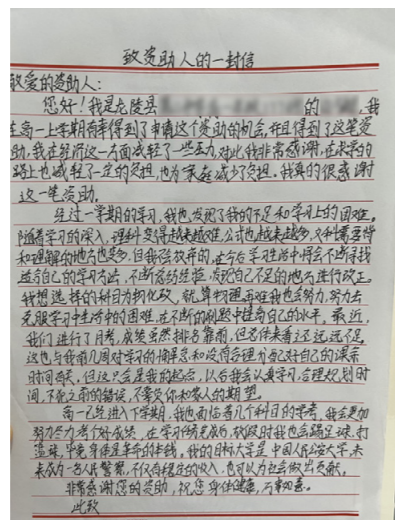 致资助人的一封信
敬爱的资助人：
您好！我是龙陵县 的 ，我
在高一上学期有幸得到了申请这个资助的机会，并且得到了这笔资
助，我在经济这一方面减轻了一些压力，对此我非常感谢，在求学的
路上也减轻了一定的负担，也为家庭减少了负担。我真的很感谢
这一笔资助。
经过一学期的学习，我也发现了我的不足和学习上的困难。
随着学习的深入，理科变得越来越难，公式也越来越多，文科需要背
和理解的地方也变多，但我不会放弃的，在今后学习生活中将会不断寻找
适合自己的学习方法，不断总结经验，发现自己不足的地方进行改正。
我想选择的科目为物化政，就算物理再难我也会努力，努力去
克服学习中生活中的困难，在不断的刷题中提高自己的水平。最近，
我们进行了月考，成绩虽然排名靠前，但总体来看还远远不足。
这也与我前几周对学习的 和没有合理分配对自己的课余
时间有关，但这只会是我的起点，以后我会认真学习，合理规划时
间，下 之前的错误，不辜负你和家人的期望。
高一已经进入下学期，我也面临着几个科目的学考，我会更加
努力尽力考个好成绩，在学习任务完成后，放假时我也会踢足球、打
篮球，毕竟身体是革命的本钱，我的目标大学是中国人民公安大学，未
来成为一名人民警察，不仅有稳定的收入，也可以为社会做出贡献。
非常感谢您的资助，祝您身体健康，万事如意。
此致